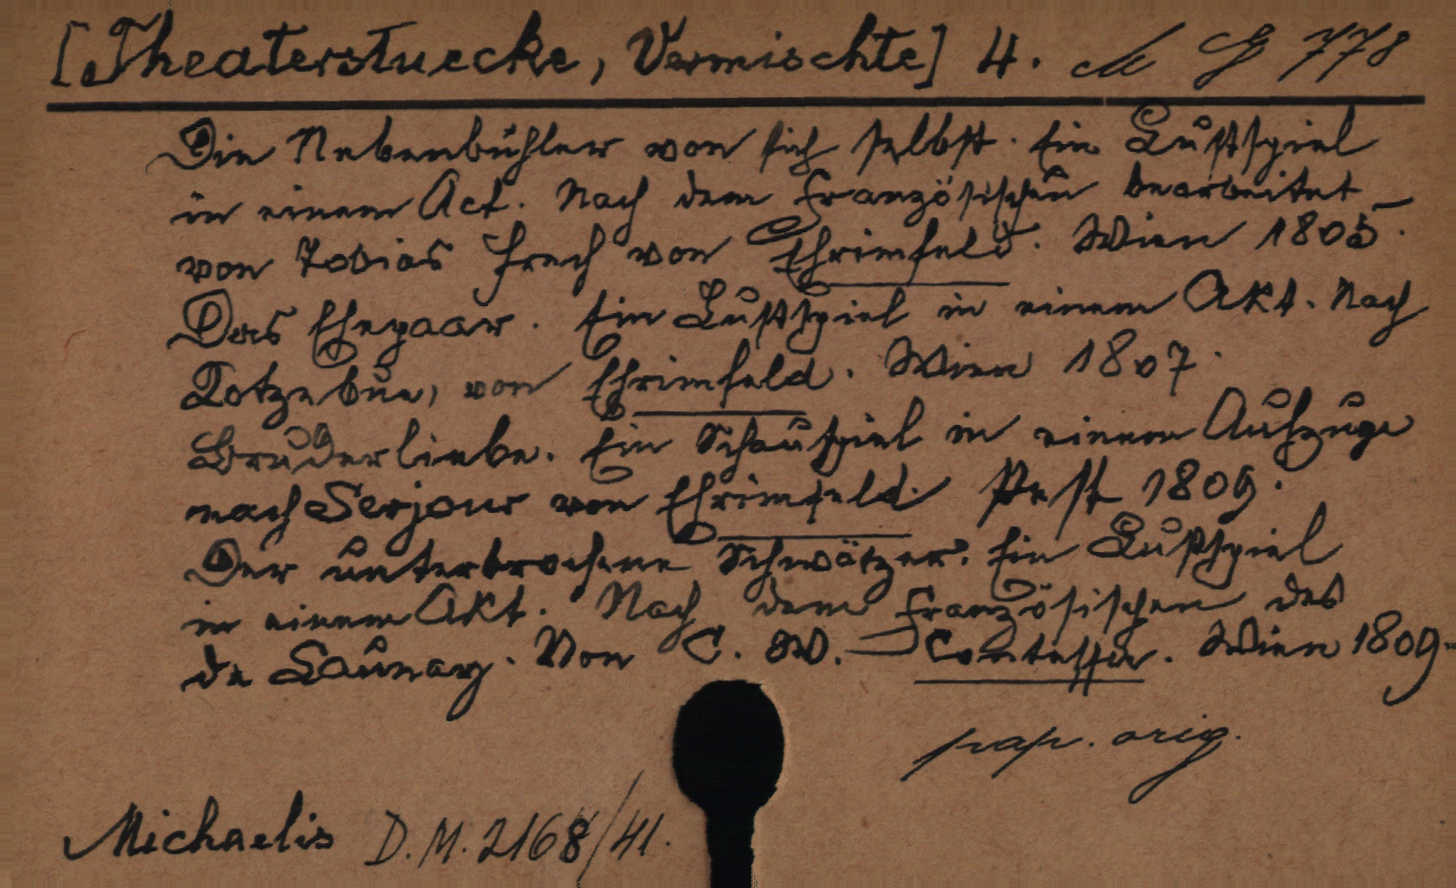 [Theaterstuecke, Vermischte] 4. 778
Die Nebenbühler von sich selbst. Ein Lustspiel
in einem Act. Nach dem Französischen bearbeitet
von Tobias Frech von Ehrimfeld. Wien 1805.
Das Ehepaar. Ein Lustspiel in einem Akt. Nach
Kotzebue, von Ehrimfeld. Wien 1807.
Bruderliebe. Ein Schauspiel in einem Aufzuge
nach Serjour von Ehrimfeld. Pest 1809.
Der unterbrochene Schwätzer. Ein Lustspiel
in einem Akt. Nach dem Französischen des
de Launay. Von C. W. Contessa. Wien 1809.
pap. orig.
Michaelis D. M. 2168/41.